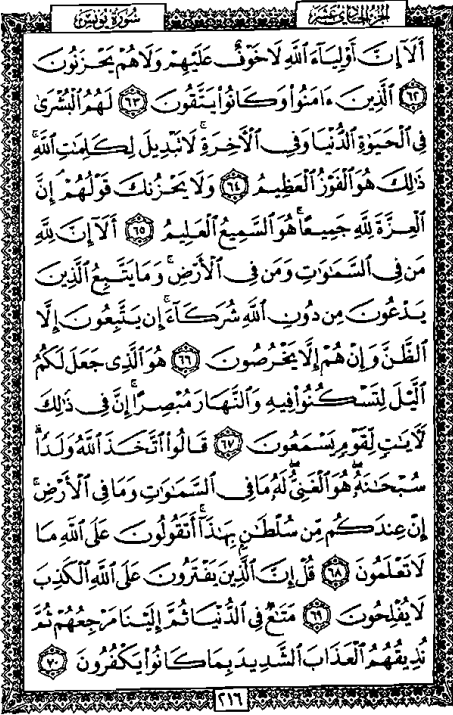 سُورَةُ يُونُسَ الجُزءُ الحَادِي عَشَرَ
أَلَآ إِنَّ أَوْلِيَآءَ ٱللَّهِ لَا خَوْفٌ عَلَيْهِمْ وَلَا هُمْ يَحْزَنُونَ
٦٢ ٱلَّذِينَ ءَامَنُوا۟ وَكَانُوا۟ يَتَّقُونَ ٦٣ لَهُمُ ٱلْبُشْرَىٰ
فِى ٱلْحَيَوٰةِ ٱلدُّنْيَا وَفِى ٱلْءَاخِرَةِ ۚ لَا تَبْدِيلَ لِكَلِمَٰتِ ٱللَّهِ ۚ
ذَٰلِكَ هُوَ ٱلْفَوْزُ ٱلْعَظِيمُ ٦٤ وَلَا يَحْزُنكَ قَوْلُهُمْ ۘ إِنَّ
ٱلْعِزَّةَ لِلَّهِ جَمِيعًا ۚ هُوَ ٱلسَّمِيعُ ٱلْعَلِيمُ ٦٥ أَلَآ إِنَّ لِلَّهِ
مَن فِى ٱلسَّمَٰوَٰتِ وَمَن فِى ٱلْأَرْضِ ۗ وَمَا يَتَّبِعُ ٱلَّذِينَ
يَدْعُونَ مِن دُونِ ٱللَّهِ شُرَكَآءَ ۚ إِن يَتَّبِعُونَ إِلَّا
ٱلظَّنَّ وَإِنْ هُمْ إِلَّا يَخْرُصُونَ ٦٦ هُوَ ٱلَّذِى جَعَلَ لَكُمُ
ٱلَّيْلَ لِتَسْكُنُوا۟ فِيهِ وَٱلنَّهَارَ مُبْصِرًا ۚ إِنَّ فِى ذَٰلِكَ
لَءَايَٰتٍ لِّقَوْمٍ يَسْمَعُونَ ٦٧ قَالُوا۟ ٱتَّخَذَ ٱللَّهُ وَلَدًا ۗ
سُبْحَٰنَهُۥ ۖ هُوَ ٱلْغَنِىُّ ۖ لَهُۥ مَا فِى ٱلسَّمَٰوَٰتِ وَمَا فِى ٱلْأَرْضِ ۚ
إِنْ عِندَكُم مِّن سُلْطَٰنٍۭ بِهَٰذَآ ۚ أَتَقُولُونَ عَلَى ٱللَّهِ مَا
لَا تَعْلَمُونَ ٦٨ قُلْ إِنَّ ٱلَّذِينَ يَفْتَرُونَ عَلَى ٱللَّهِ ٱلْكَذِبَ
لَا يُفْلِحُونَ ٦٩ مَتَٰعٌ فِى ٱلدُّنْيَا ثُمَّ إِلَيْنَا مَرْجِعُهُمْ ثُمَّ
نُذِيقُهُمُ ٱلْعَذَابَ ٱلشَّدِيدَ بِمَا كَانُوا۟ يَكْفُرُونَ ٧٠
٢١٦